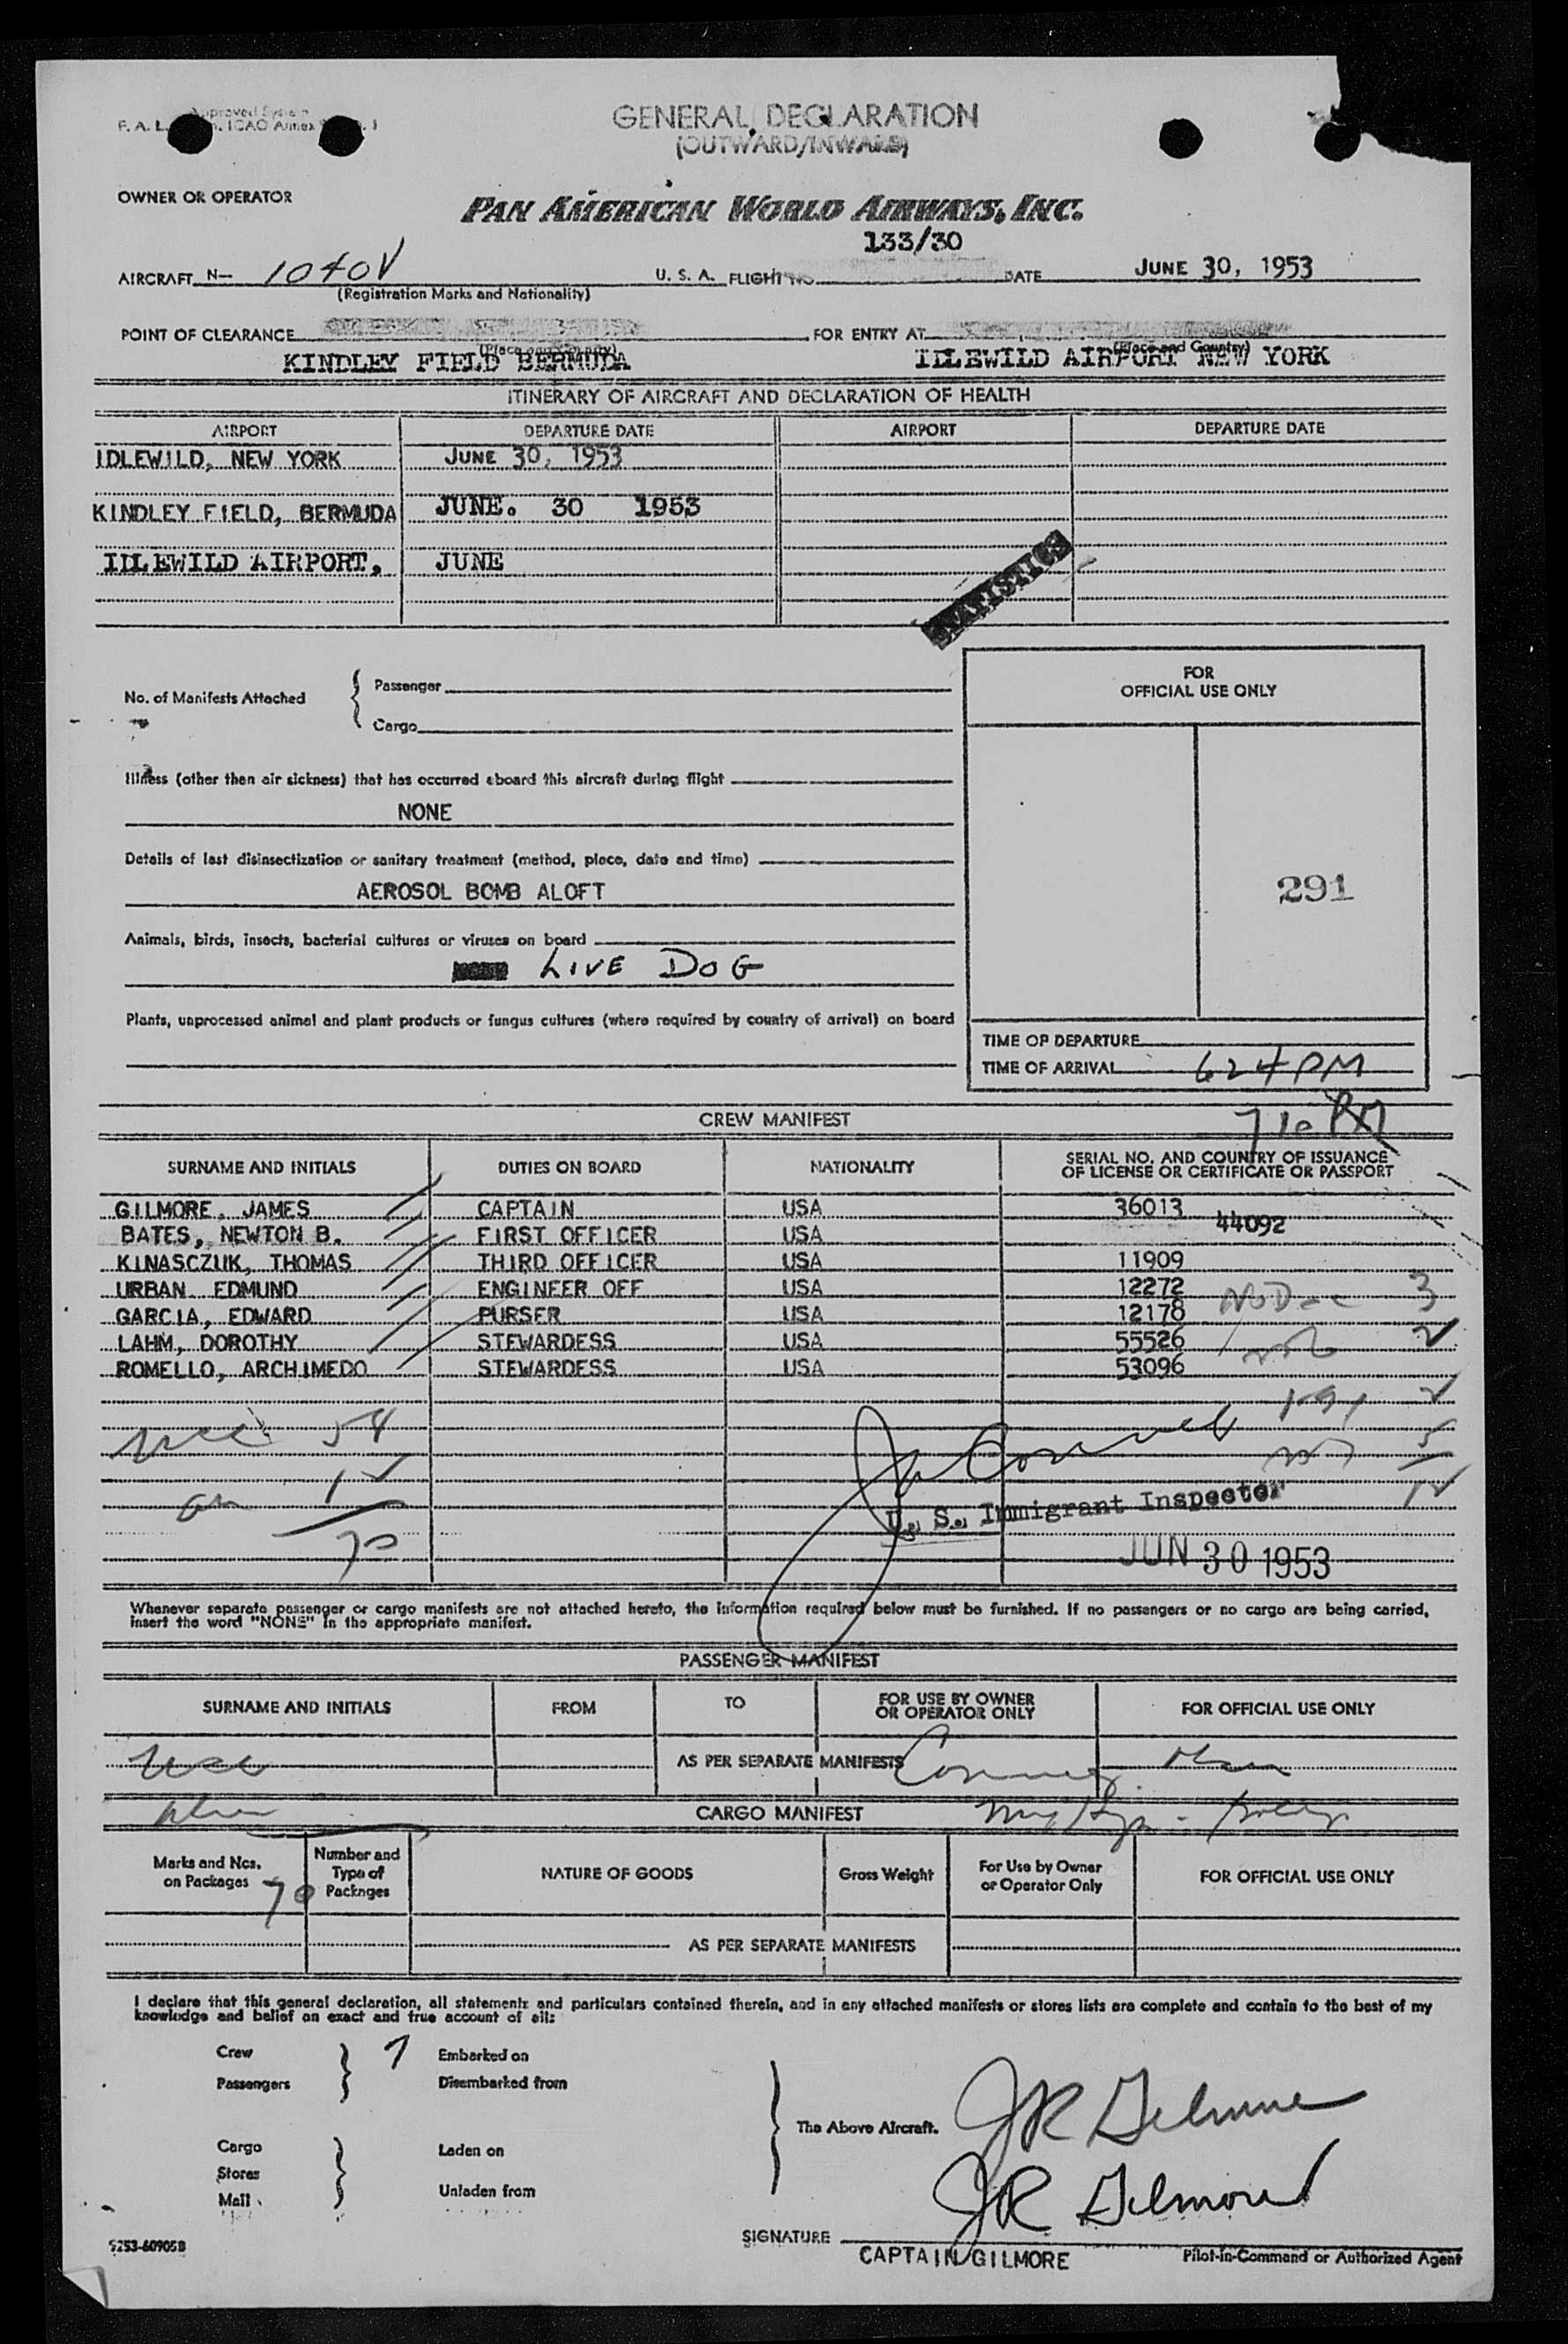 Approved System
F. A. L. ICAO Annex
GENERAL DECLARATION
(OUTWARD/INWARD)
OWNER OR OPERATOR
PAN AMERICAN WORLD AIRWAYS, INC.
133/30
AIRCRAFT N- 1040V U. S. A. FLIGHT NO. DATE JUNE 30, 1953
(Registration Marks and Nationality)
POINT OF CLEARANCE FOR ENTRY AT
(Place and Country) (Place and Country)
KINDLEY FIELD BERMUDA IDLEWILD AIRPORT NEW YORK
ITINERARY OF AIRCRAFT AND DECLARATION OF HEALTH
AIRPORT DEPARTURE DATE AIRPORT DEPARTURE DATE
IDLEWILD, NEW YORK JUNE 30, 1953
KINDLEY FIELD, BERMUDA JUNE. 30 1953
IDLEWILD AIRPORT, JUNE
STATISTICS
FOR
OFFICIAL USE ONLY
No. of Manifests Attached { Passenger
Cargo
Illness (other than air sickness) that has occurred aboard this aircraft during flight
NONE
Details of last disinsectization or sanitary treatment (method, place, date and time)
AEROSOL BOMB ALOFT
291
Animals, birds, insects, bacterial cultures or viruses on board
LIVE DOG
Plants, unprocessed animal and plant products or fungus cultures (where required by country of arrival) on board
TIME OF DEPARTURE
TIME OF ARRIVAL 624 PM
710 PM
CREW MANIFEST
SURNAME AND INITIALS DUTIES ON BOARD NATIONALITY SERIAL NO. AND COUNTRY OF ISSUANCE
OF LICENSE OR CERTIFICATE OR PASSPORT
GILMORE, JAMES CAPTAIN USA 36013
BATES, NEWTON B. FIRST OFFICER USA 44092
KINASCZUK, THOMAS THIRD OFFICER USA 11909
URBAN EDMUND ENGINEER OFF USA 12272
GARCIA, EDWARD PURSER USA 12178
LAHM, DOROTHY STEWARDESS USA 55526
ROMELLO, ARCHIMEDO STEWARDESS USA 53096
U. S. Immigrant Inspector
JUN 30 1953
Whenever separate passenger or cargo manifests are not attached hereto, the information required below must be furnished. If no passengers or no cargo are being carried,
insert the word "NONE" in the appropriate manifest.
PASSENGER MANIFEST
SURNAME AND INITIALS FROM TO FOR USE BY OWNER
OR OPERATOR ONLY FOR OFFICIAL USE ONLY
AS PER SEPARATE MANIFESTS
CARGO MANIFEST
Marks and Nos.
on Packages Number and
Type of
Packages NATURE OF GOODS Gross Weight For Use by Owner
or Operator Only FOR OFFICIAL USE ONLY
70
AS PER SEPARATE MANIFESTS
I declare that this general declaration, all statements and particulars contained therein, and in any attached manifests or stores lists are complete and contain to the best of my
knowledge and belief an exact and true account of all:
Crew 7 Embarked on
Passengers Disembarked from
The Above Aircraft. JR Gilmore
Cargo Laden on
Stores
Mail Unladen from
JR Gilmore
SIGNATURE
9253-609058
CAPTAIN GILMORE Pilot-in-Command or Authorized Agent